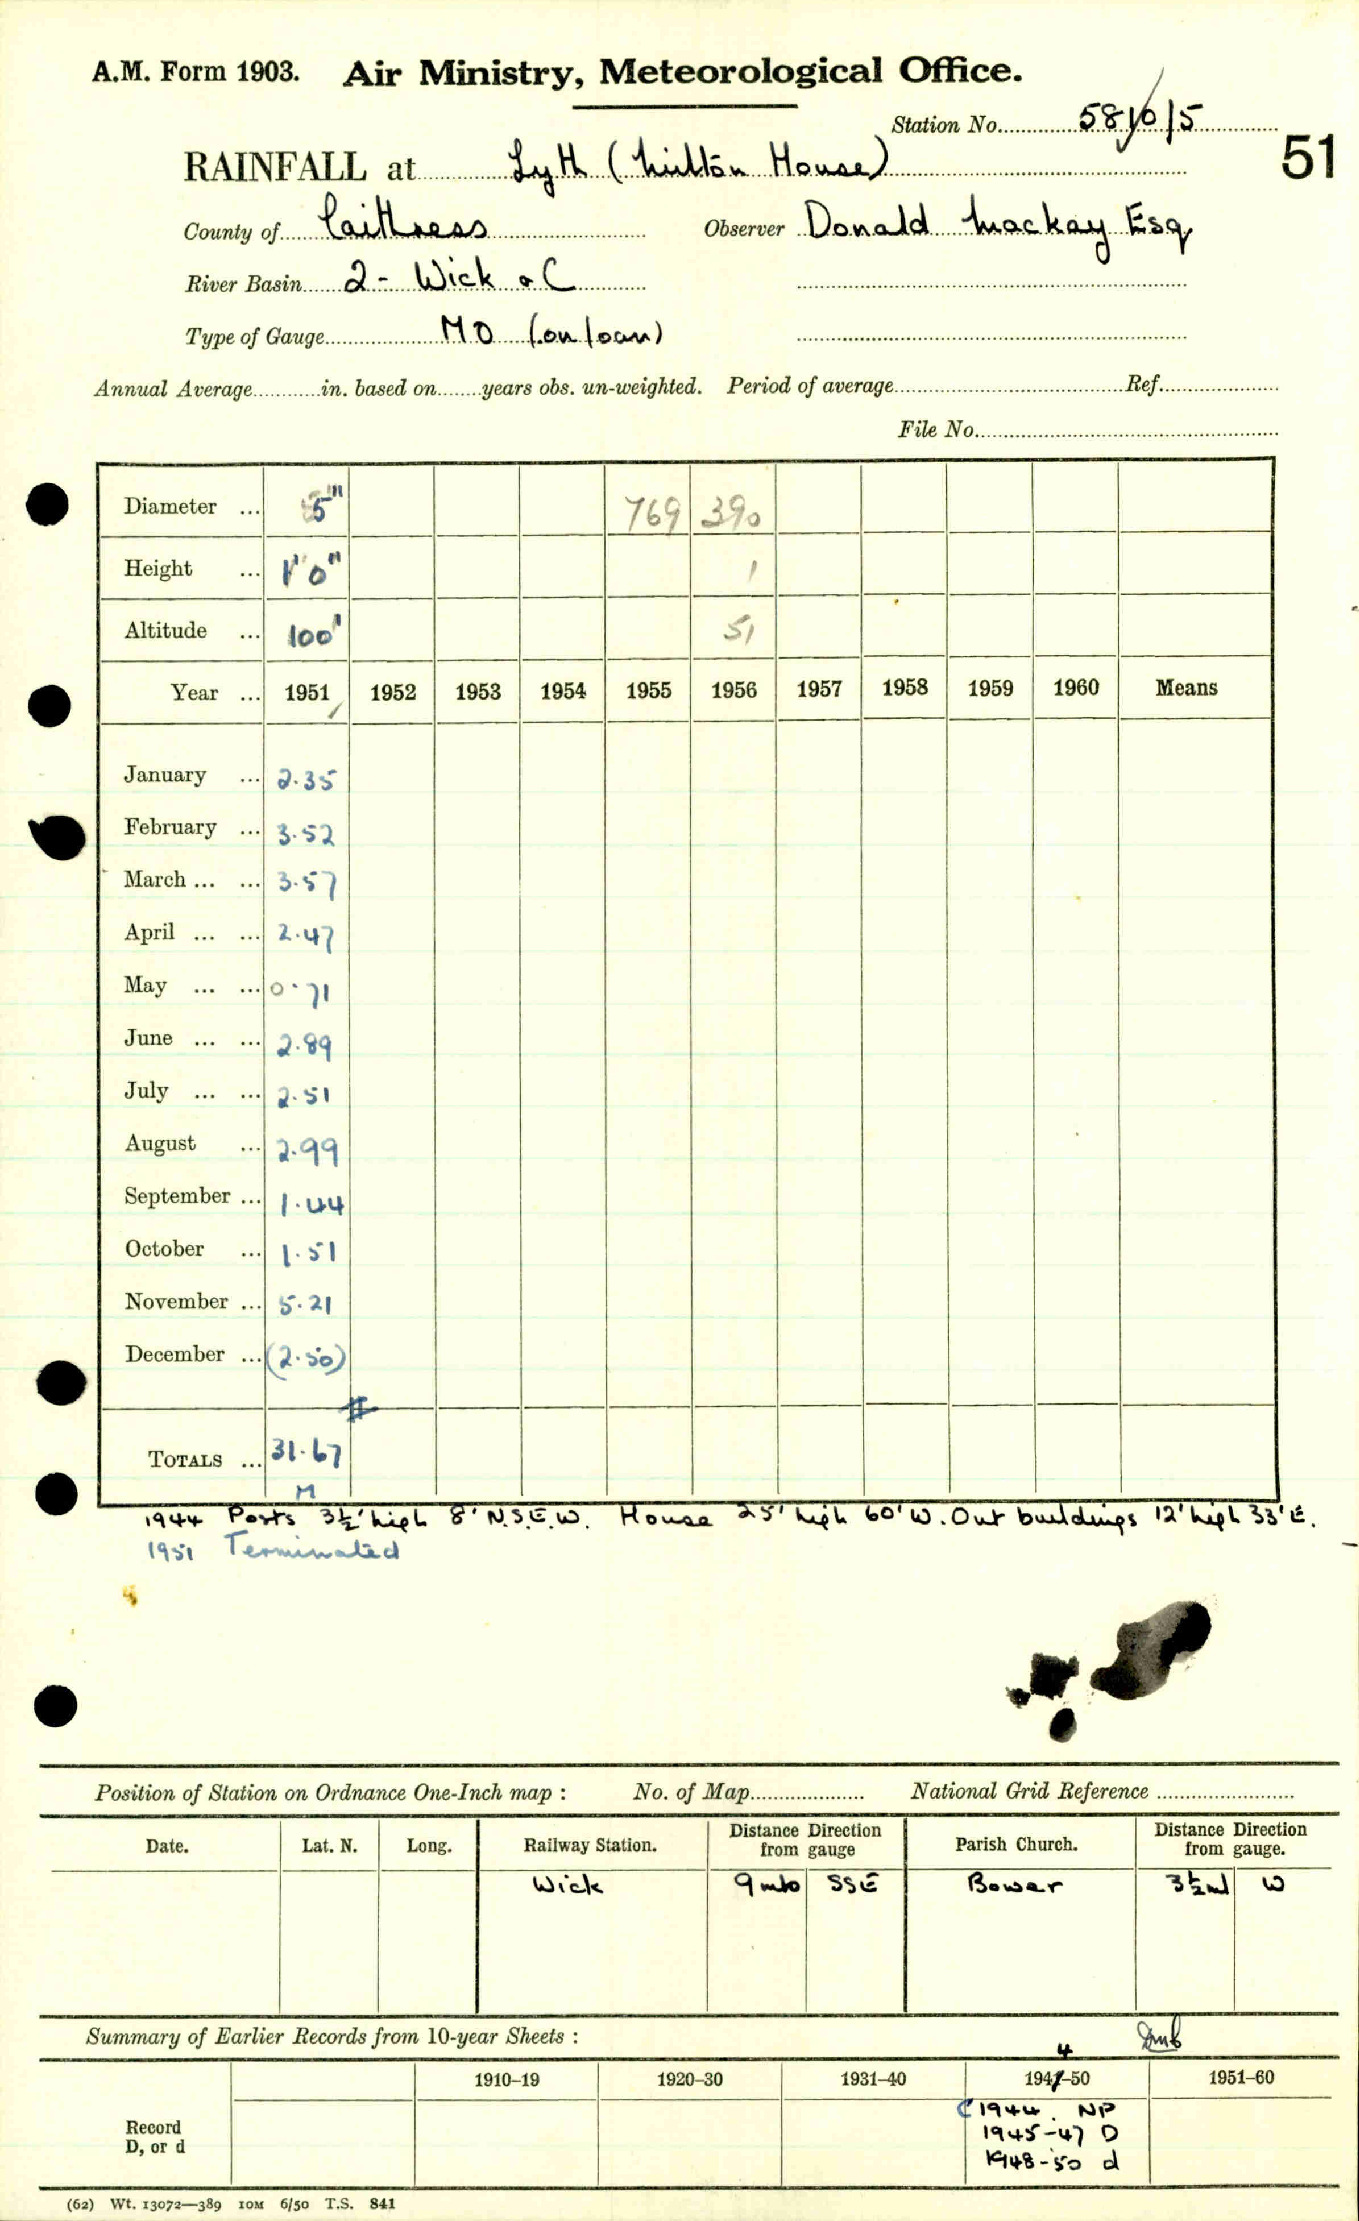 A.M. Form 1903. Air Ministry, Meteorological Office.
Station No. 58/0/5
51
RAINFALL at Lyth (Milton House)
County of Caithness Observer Donald Mackay Esq
River Basin 2 - Wick &C
Type of Gauge MO (on loan)
Annual Average in. based on years obs. un-weighted. Period of average Ref.
File No.
Diameter ... 5" 769 390
Height ... 1'0" 1
Altitude ... 100' 51
Year ... 1951 1952 1953 1954 1955 1956 1957 1958 1959 1960 Means
January ... 2.35
February ... 3.52
March ... ... 3.57
April ... ... 2.47
May ... ... 0.71
June ... ... 2.89
July ... ... 2.51
August ... 2.99
September ... 1.44
October ... 1.51
November ... 5.21
December ... (2.50)
TOTALS ... 31.67
M
1944 Posts 3½' high 8' N.S.E.W. House 25' high 60' W. Out buildings 12' high 33' E.
1951 Terminated
Position of Station on Ordnance One-Inch map : No. of Map National Grid Reference
Date. Lat. N. Long. Railway Station. Distance from gauge Direction Parish Church. Distance from gauge. Direction
Wick 9 mls SSE Bower 3½ ml W
Summary of Earlier Records from 10-year Sheets :
4
1910–19 1920–30 1931–40 1941–50 1951–60
Record
D, or d
1944 NP
1945-47 D
1948-50 d
(62) Wt. 13072—389 10M 6/50 T.S. 841